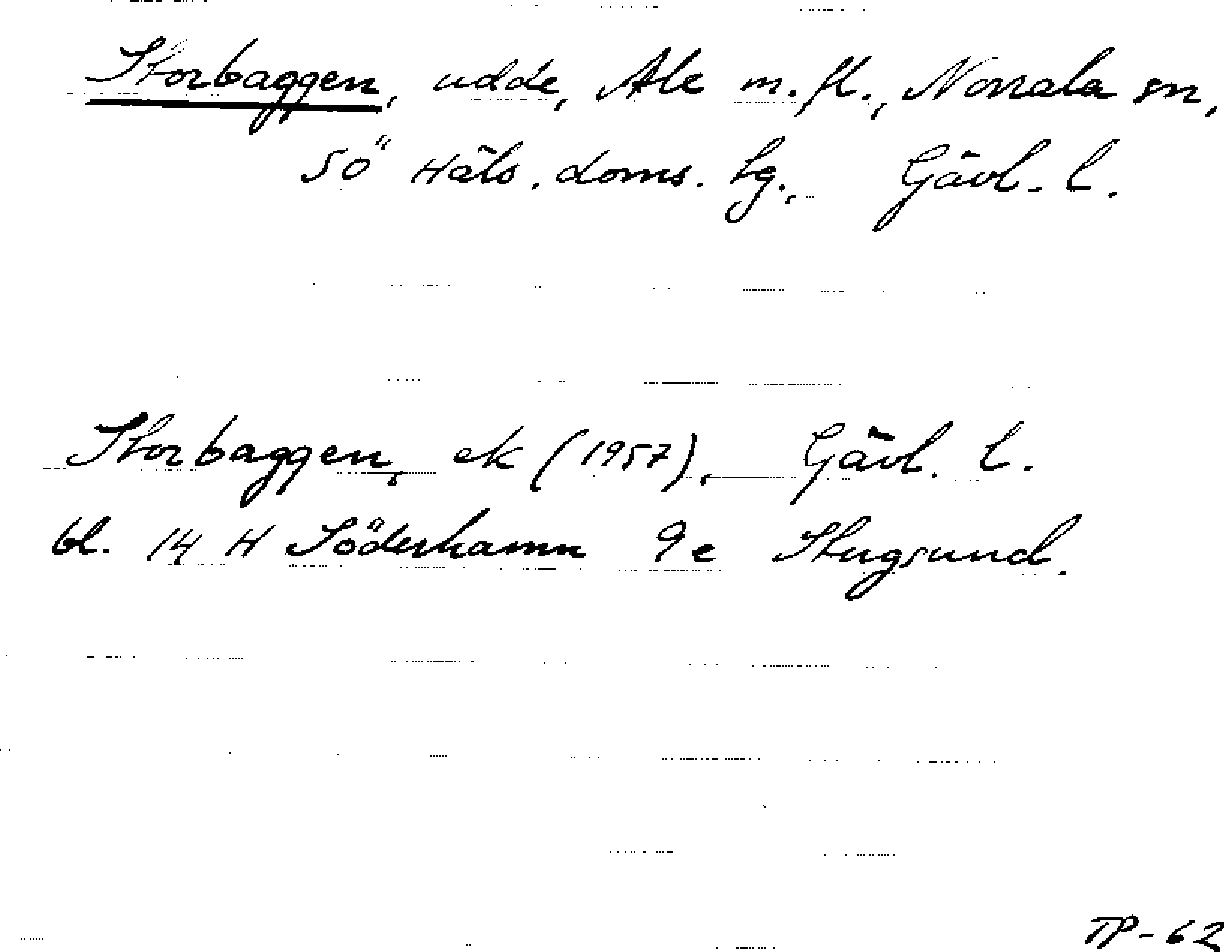 Storbaggen, udde, Ale m.fl., Norrala sn,
SÖ Häls. doms. hg., Gävl. l.
Storbaggen, ek (1957), Gävl. l.
bl. 14 H Söderhamn 9e Stugsund.
TP-62